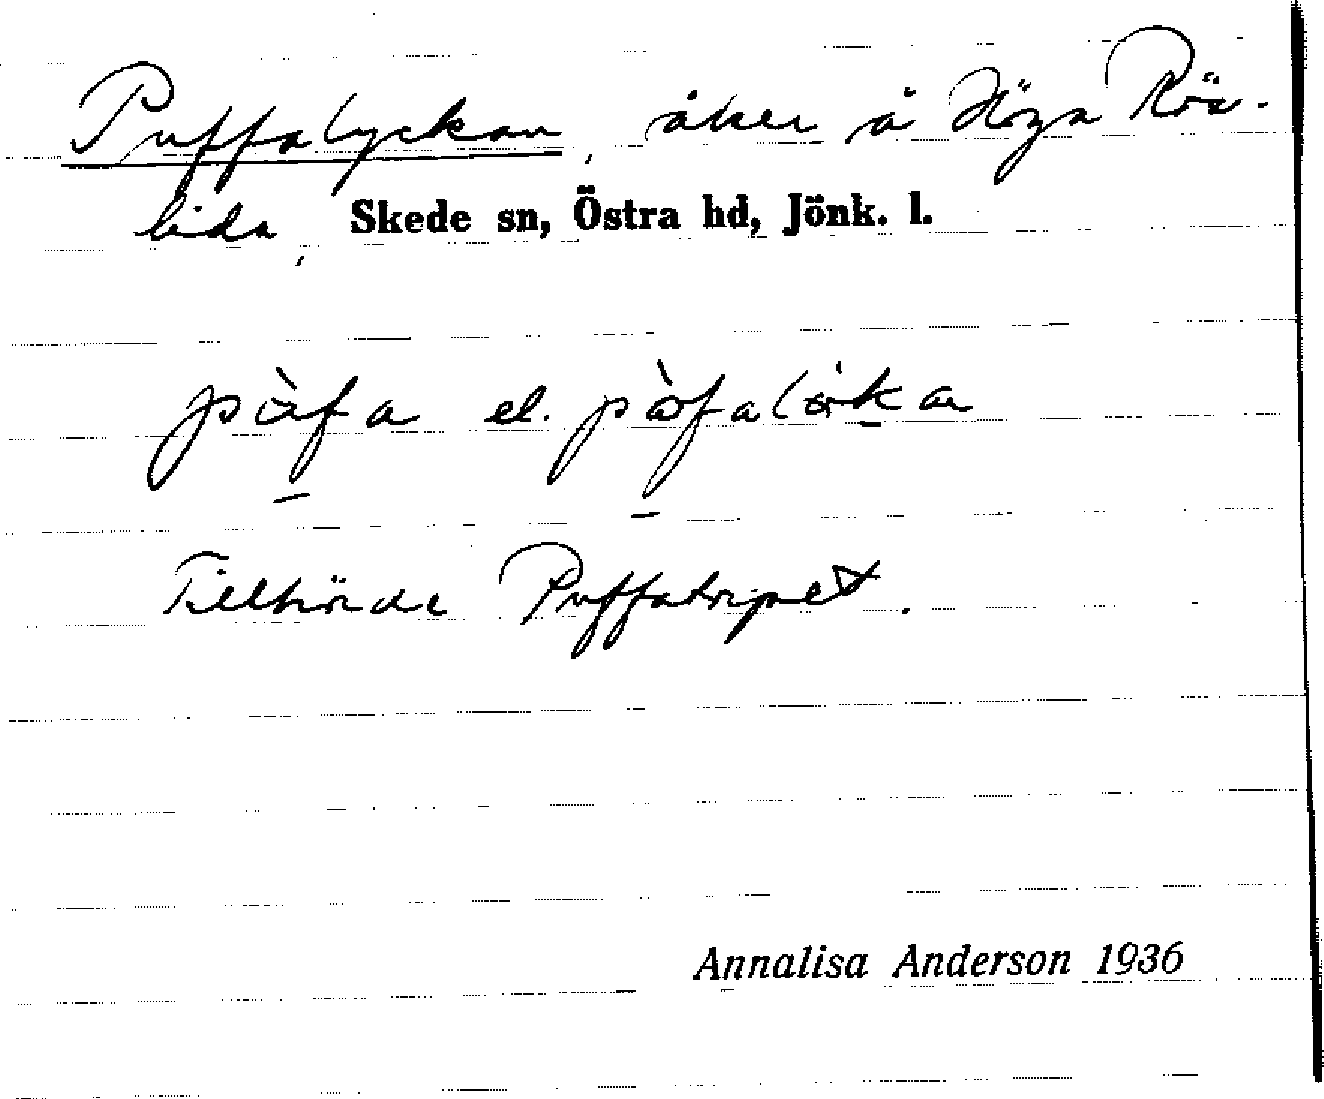 Puffalyckan, åker å Höga Rös-
lida, Skede sn, Östra hd, Jönk. l.
pàfa el. pòfalöka
Tillhörde Puffatorpet.
Annalisa Anderson 1936